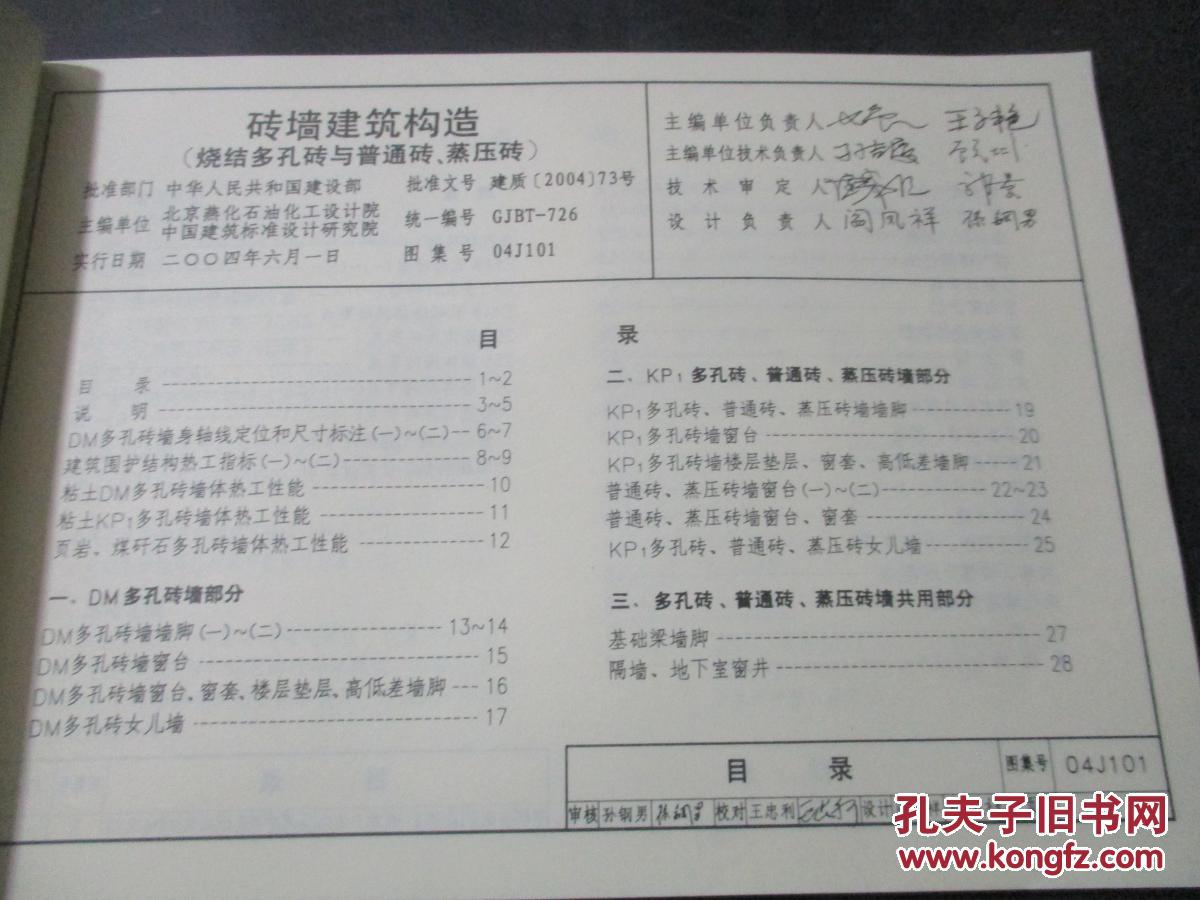 砖墙建筑构造
(烧结多孔砖与普通砖、蒸压砖)
批准部门 中华人民共和国建设部 批准文号 建质〔2004〕73号
主编单位 北京燕化石油化工设计院
中国建筑标准设计研究院 统一编号 GJBT-726
实行日期 二〇〇四年六月一日 图集号 04J101
主编单位负责人
主编单位技术负责人
技术审定人
设计负责人 阎凤祥 孫鋼男
目 录
目 录 1~2
说 明 3~5
DM多孔砖墙身轴线定位和尺寸标注(一)~(二) 6~7
建筑围护结构热工指标(一)~(二) 8~9
粘土DM多孔砖墙体热工性能 10
粘土KP1多孔砖墙体热工性能 11
页岩、煤矸石多孔砖墙体热工性能 12
一. DM多孔砖墙部分
DM多孔砖墙墙脚(一)~(二) 13~14
DM多孔砖墙窗台 15
DM多孔砖墙窗台、窗套、楼层垫层、高低差墙脚 16
DM多孔砖女儿墙 17
二. KP1多孔砖、普通砖、蒸压砖墙部分
KP1多孔砖、普通砖、蒸压砖墙墙脚 19
KP1多孔砖墙窗台 20
KP1多孔砖墙楼层垫层、窗套、高低差墙脚 21
普通砖、蒸压砖墙窗台(一)~(二) 22~23
普通砖、蒸压砖墙窗台、窗套 24
KP1多孔砖、普通砖、蒸压砖女儿墙 25
三. 多孔砖、普通砖、蒸压砖墙共用部分
基础梁墙脚 27
隔墙、地下室窗井 28
目 录 图集号 04J101
审核 孙钢男 孫鋼男 校对 王忠利 设计
孔夫子旧书网
www.kongfz.com